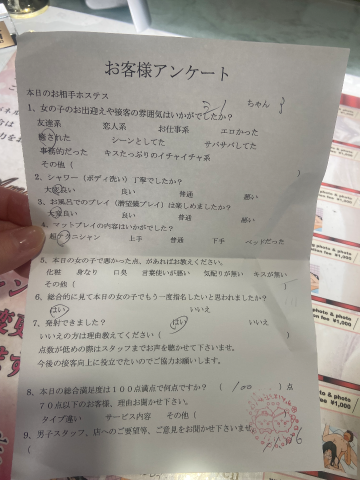 お客様アンケート
本日のお相手ホステス
ちゃん
1、女の子のお出迎えや接客の雰囲気はいかがでしたか？
友達系 恋人系 お仕事系 エロかった
癒された シーンとしてた サバサバしてた
事務的だった キスたっぷりのイチャイチャ系
その他（ ）
2、シャワー（ボディ洗い）丁寧でしたか？
大変良い 良い 普通 悪い
3、お風呂でのプレイ（潜望鏡プレイ）は楽しめましたか？
大変良い 良い 普通 悪い
4、マットプレイの内容はいかがでしたか？
超テクニシャン 上手 普通 下手 ベッドだった
5、本日の女の子で悪かった点、があればお教えください。
化粧 身なり 口臭 言葉使いが悪い 気配りが悪い キスが無い
その他（ ）
6、総合的に見て本日の女の子でもう一度指名したいと思われましたか？
はい いいえ
7、発射できました？ はい いいえ
いいえの方は理由教えてください（
点数が低めの際はスタッフまでお声を聞かせて下さいませ。
今後の接客向上に役立てたいのでご協力お願いします。
8、本日の総合満足度は１００点満点で何点ですか？（ 100 ）点
７０点以下のお客様、理由お聞かせ下さい。
タイプ違い サービス内容 その他（
9、男子スタッフ、店へのご要望等、ご意見をお聞かせ下さいませ
（
& photo
fee ¥1,000
photo & photo
¥1,000